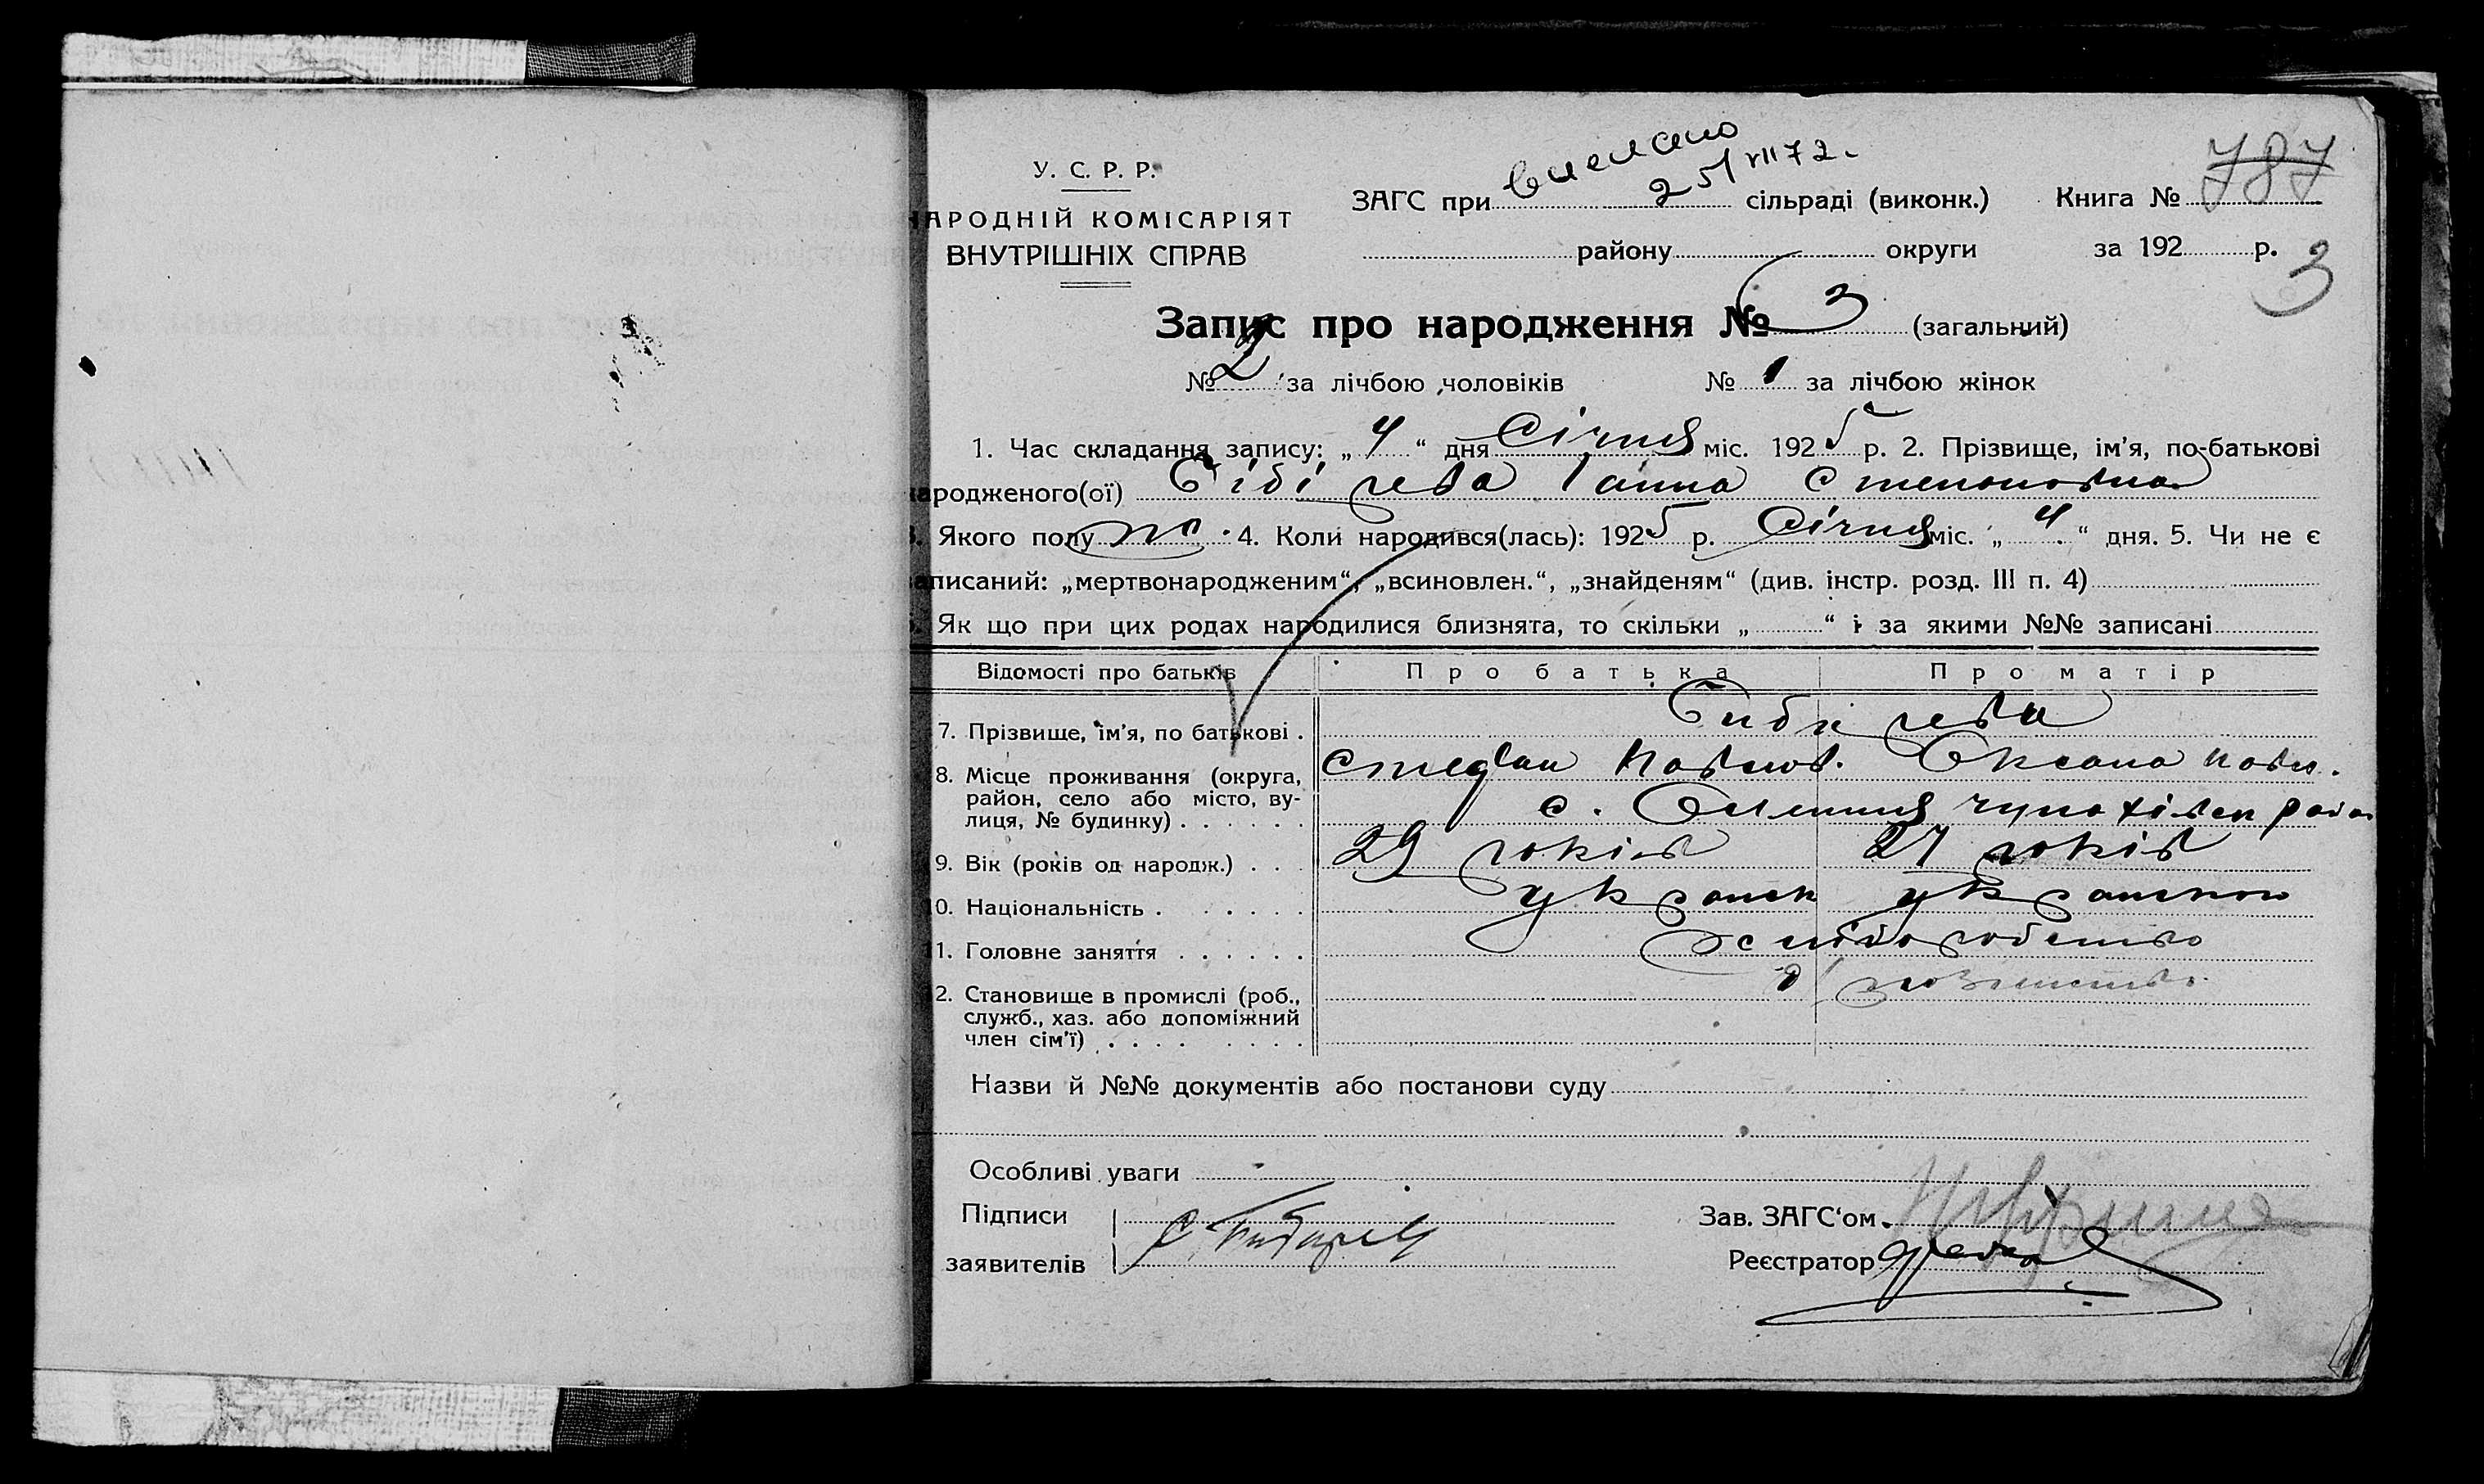 У. С. Р. Р.
АРОДНІЙ КОМІСАРІЯТ
ВНУТРІШНІХ СПРАВ
25/VII 72.
ЗАГС при сільраді (виконк.) Книга № 787
району округи за 192 р.
3
Запис про народження № 3 (загальний)
№ 2 за лічбою чоловіків № 1 за лічбою жінок
1. Час складання запису: „ 4 “ дня Січня міс. 1925 р. 2. Прізвище, ім’я, по-батькові
ародженого(ої) Ганна Степановна
Якого полу ж. 4. Коли народився(лась): 1925 р. Січня міс. „ 4 “ дня. 5. Чи не є
аписаний: „мертвонародженим“, „всиновлен.“, „знайденям“ (див. інстр. розд. III п. 4)
Як що при цих родах народилися близнята, то скільки „ “ і за якими №№ записані
Відомості про батьків Про батька Про матір
7. Прізвище, ім’я, по батькові .
Степан Павлов. Оксана Павл.
8. Місце проживання (округа,
район, село або місто, ву-
лиця, № будинку) . . . . . . с. район
9. Вік (років од народж.) . . . 29 років 27 років
0. Національність . . . . . .
1. Головне заняття . . . . . .
2. Становище в промислі (роб.,
служб., хаз. або допоміжний
член сім’ї) . . . . . . . .
Назви й №№ документів або постанови суду
Особливі уваги
Підписи
заявителів
Зав. ЗАГС‘ом
Реєстратор